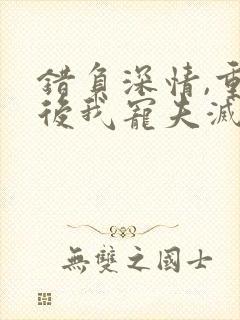 錯負深情,重
後我寵夫滅
無雙之國士